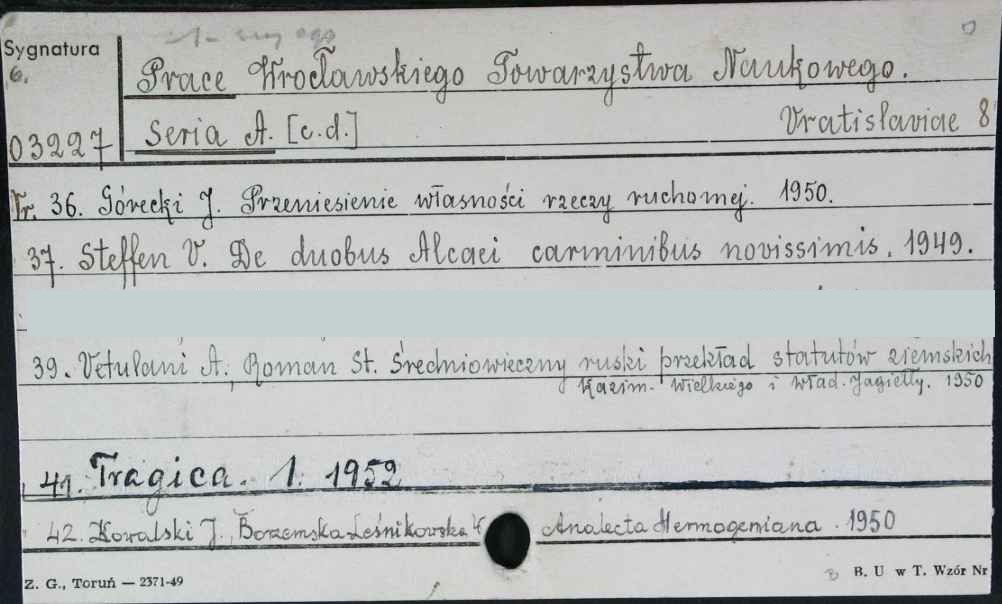 Sygnatura
6.
03227
Prace Wrocławskiego Towarzystwa Naukowego.
Seria A. [c.d.] Vratislaviae 8
Nr. 36. Górecki J. Przeniesienie własności rzeczy ruchomej. 1950.
37. Steffen V. De duobus Alcaei carminibus novissimis. 1949.
39. Vetulani A., Roman St. Średniowieczny ruski przekład statutów ziemskich
Kazim. Wielkiego i Wład. Jagiełły. 1950
41. Tragica. 1. 1952
42. Kowalski J., Borzemska-Leśnikowska Analecta Hermogeniana. 1950
Z. G., Toruń — 2371-49
B. U w T. Wzór Nr